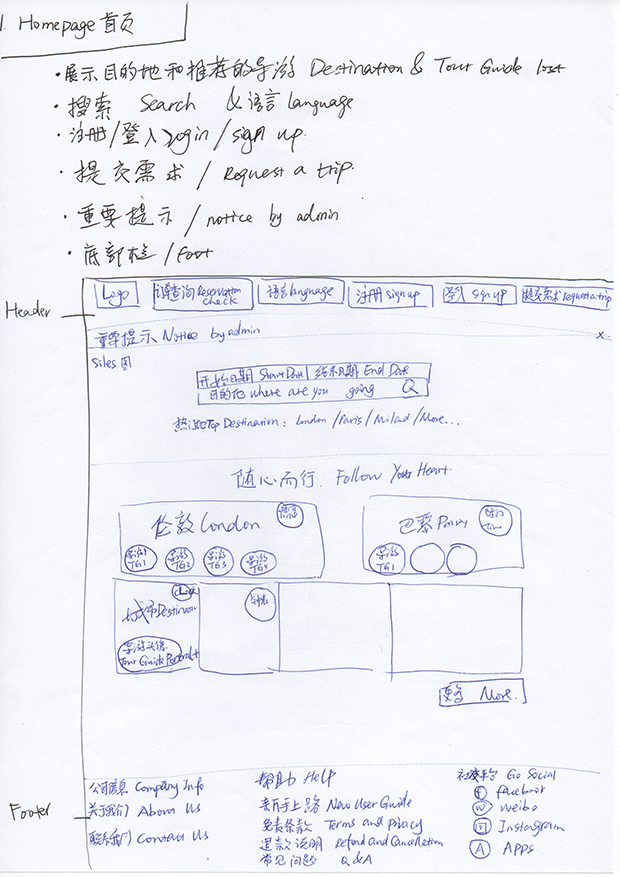 1. Homepage 首页
·展示目的地和推荐的导游 Destination & Tour Guide list
·搜索 Search & 语言 language
·注册/登入 login / sign up.
·提交需求 / Request a trip.
·重要提示 / notice by admin
·底部栏 / Foot
Header
Logo 订单查询 Reservation check 语言 language 注册 sign up 登入 sign up 提交需求 request a trip
重要提示 Notice by admin x
Siles 图
开始日期 Start Date 结束日期 End Date
目的地 where are you going Q
热门地 Top Destination: London / Paris / Milad / More...
随心而行. Follow Your Heart.
伦敦 London
导游 TG1 导游 TG2 导游 TG3 导游 TG4
巴黎
导游 TG1
城市 Destination
导游头像 Tour Guide
更多 More.
Footer
公司信息 Company Info
关于我们 About Us
联系我们 Contact Us
帮助 Help
新手上路 New User Guide
免责条款 Terms and privacy
退款说明 Refund and Cancellation
常见问题 Q & A
社交平台 Go Social
f facebook
w weibo
Instagram
A Apps.